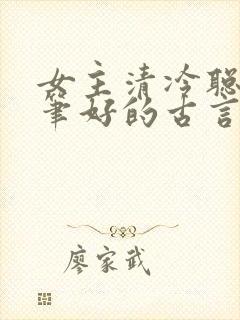 女主清冷聪
笔好的古言
廖家武